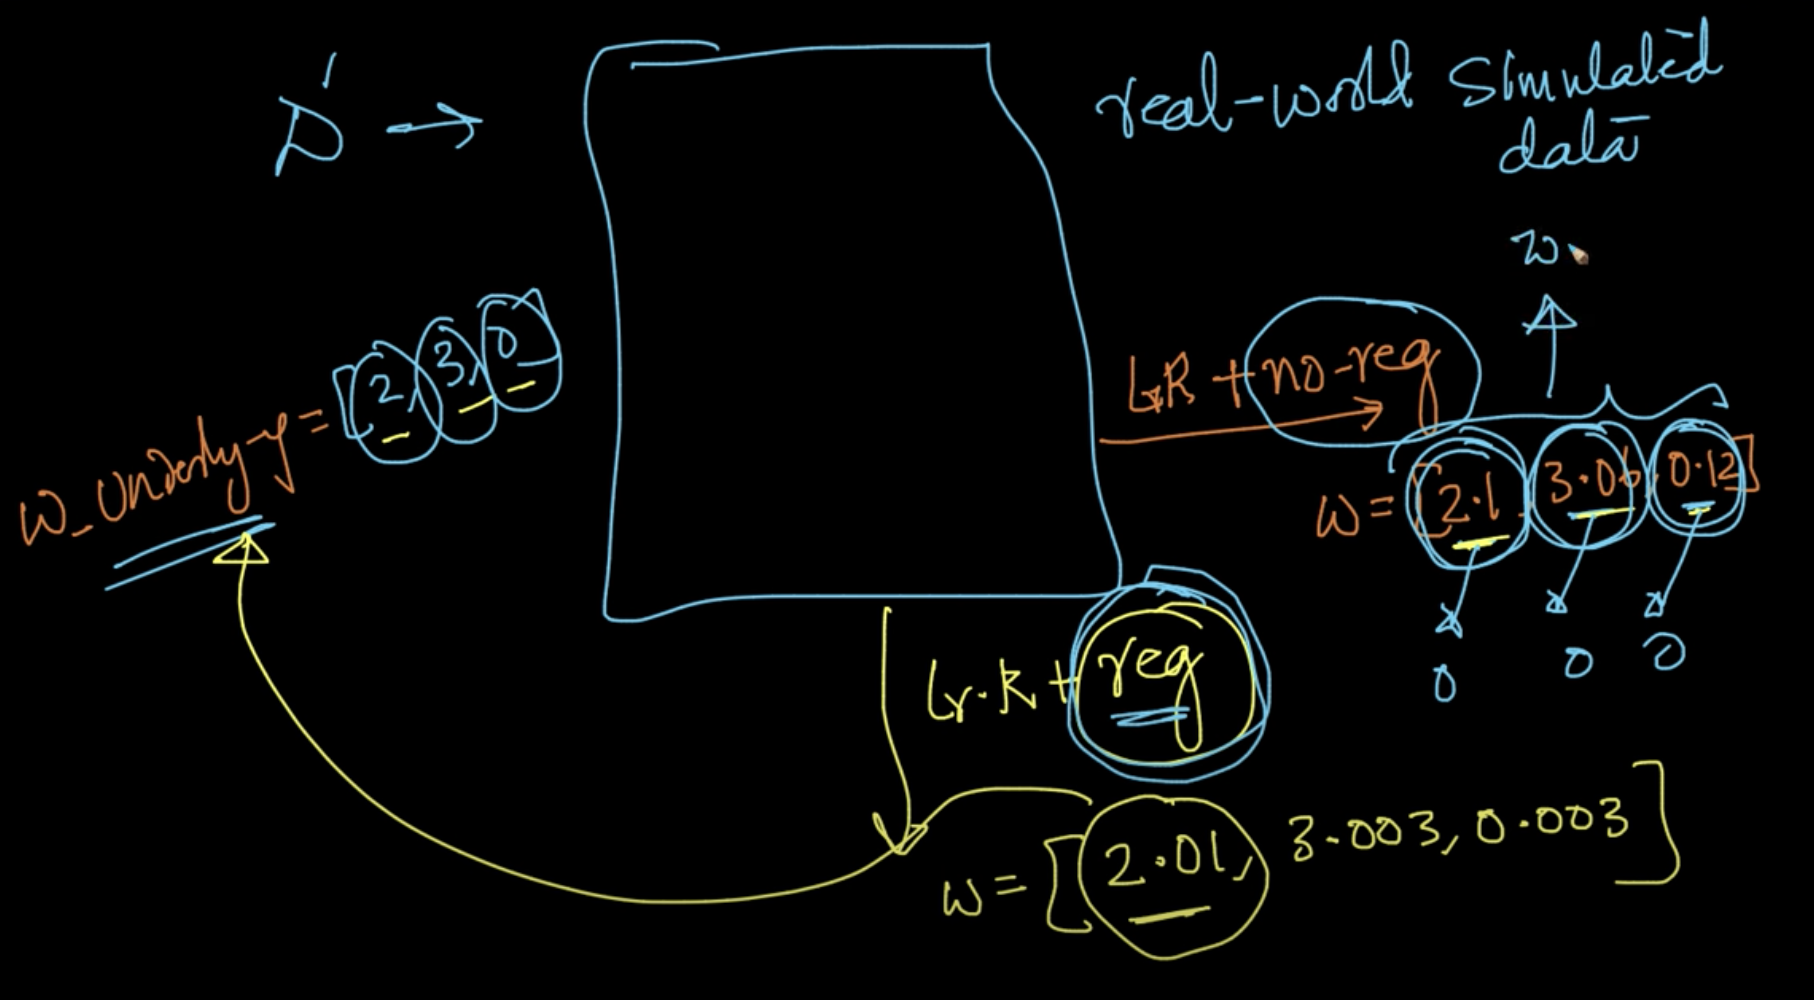 D' →
real-world simulated
data
w
w_underlying = [2, 3, 0]
LR + no-reg
w = [2.1, 3.06, 0.12]
0 0 0
Lr.R + reg
w = [2.01, 3.003, 0.003]